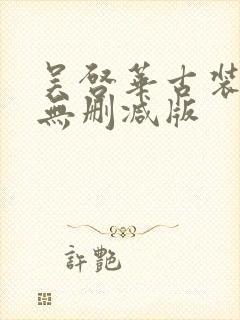 吴启华古装
無删减版
許艷